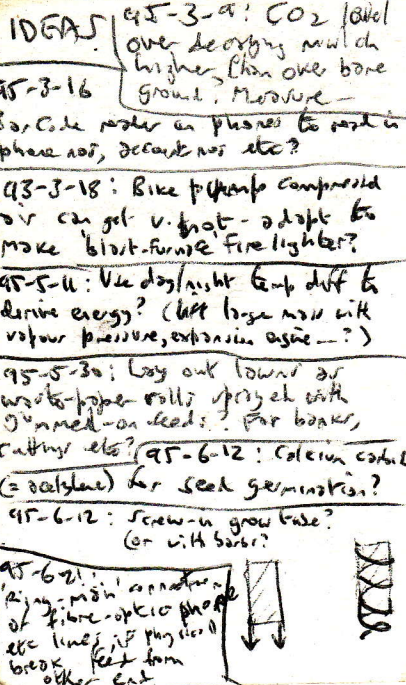 IDEAS!
95-3-9: CO2 level
over decaying mulch
higher than over bare
ground? Measure —
95-3-16
Bar Code reader on phones to read in
phone nos, account nos etc?
93-3-18: Bike pump compressed
air can get v. hot - adapt to
make 'blast-furnace' fire lighter?
95-5-11: Use day/night temp diff to
derive energy? (lift large mass with
vapour pressure, expansion engine —?)
95-5-30: Lay out lawns as
waste-paper rolls sprayed with
gummed-on seeds? For banks,
cuttings etc?
95-6-12: Calcium carbide
(= acetylene) for seed germination?
95-6-12: Screw-in grow tube?
(or with barbs?
95-6-21:
Ring-main connection
of fibre-optic phone
etc lines, if physical
break, feed from
other end